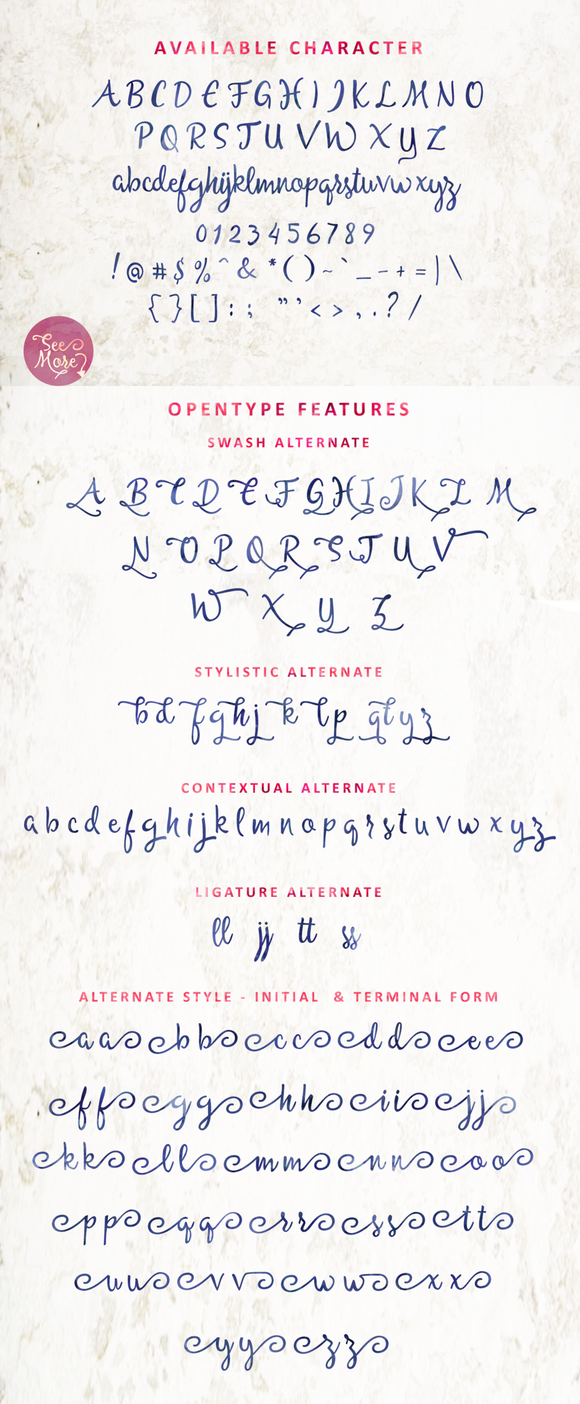 AVAILABLE CHARACTER
A B C D E F G H I J K L M N O
P Q R S T U V W X Y Z
abcdefghijklmnopqrstuvwxyz
0 1 2 3 4 5 6 7 8 9
! @ # $ % ^ & * ( ) ~ ` _ - + = | \
{ } [ ] : ; " ' < > , . ? /
See
More
OPENTYPE FEATURES
SWASH ALTERNATE
A B C D E F G H I J K L M
N O P Q R S T U V
W X Y Z
STYLISTIC ALTERNATE
b d f g h j k l p q t y z
CONTEXTUAL ALTERNATE
a b c d e f g h i j k l m n o p q r s t u v w x y z
LIGATURE ALTERNATE
ll jj tt ss
ALTERNATE STYLE - INITIAL & TERMINAL FORM
aa bb cc dd ee
ff gg hh ii jj
kk ll mm nn oo
pp qq rr ss tt
uu vv ww xx
yy zz